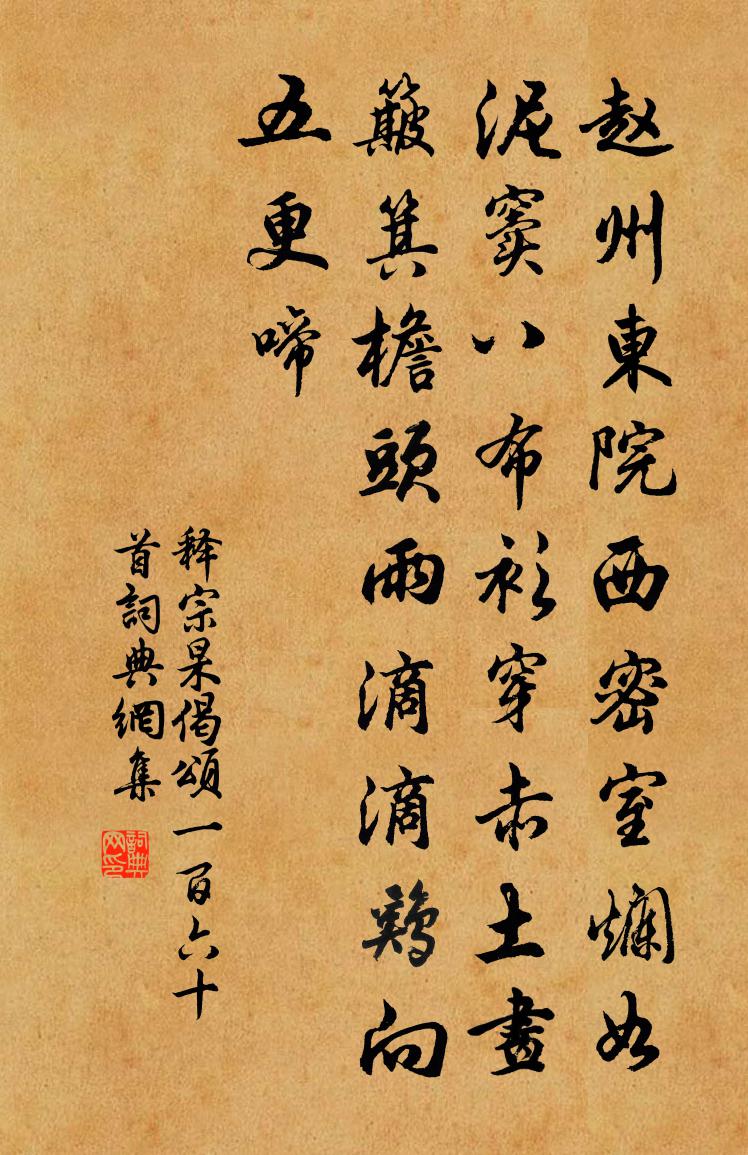 赵州東院西密室爛如
泥竇八布衫穿赤土畫
簸箕檐頭雨滴滴鷄向
五更啼
释宗杲偈頌一百六十
首詞典網集
詞典
网印